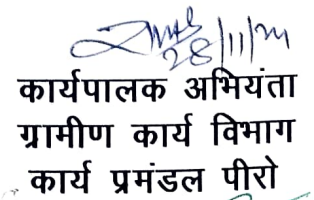 28/11/24
कार्यपालक अभियंता
ग्रामीण कार्य विभाग
कार्य प्रमंडल पीरो